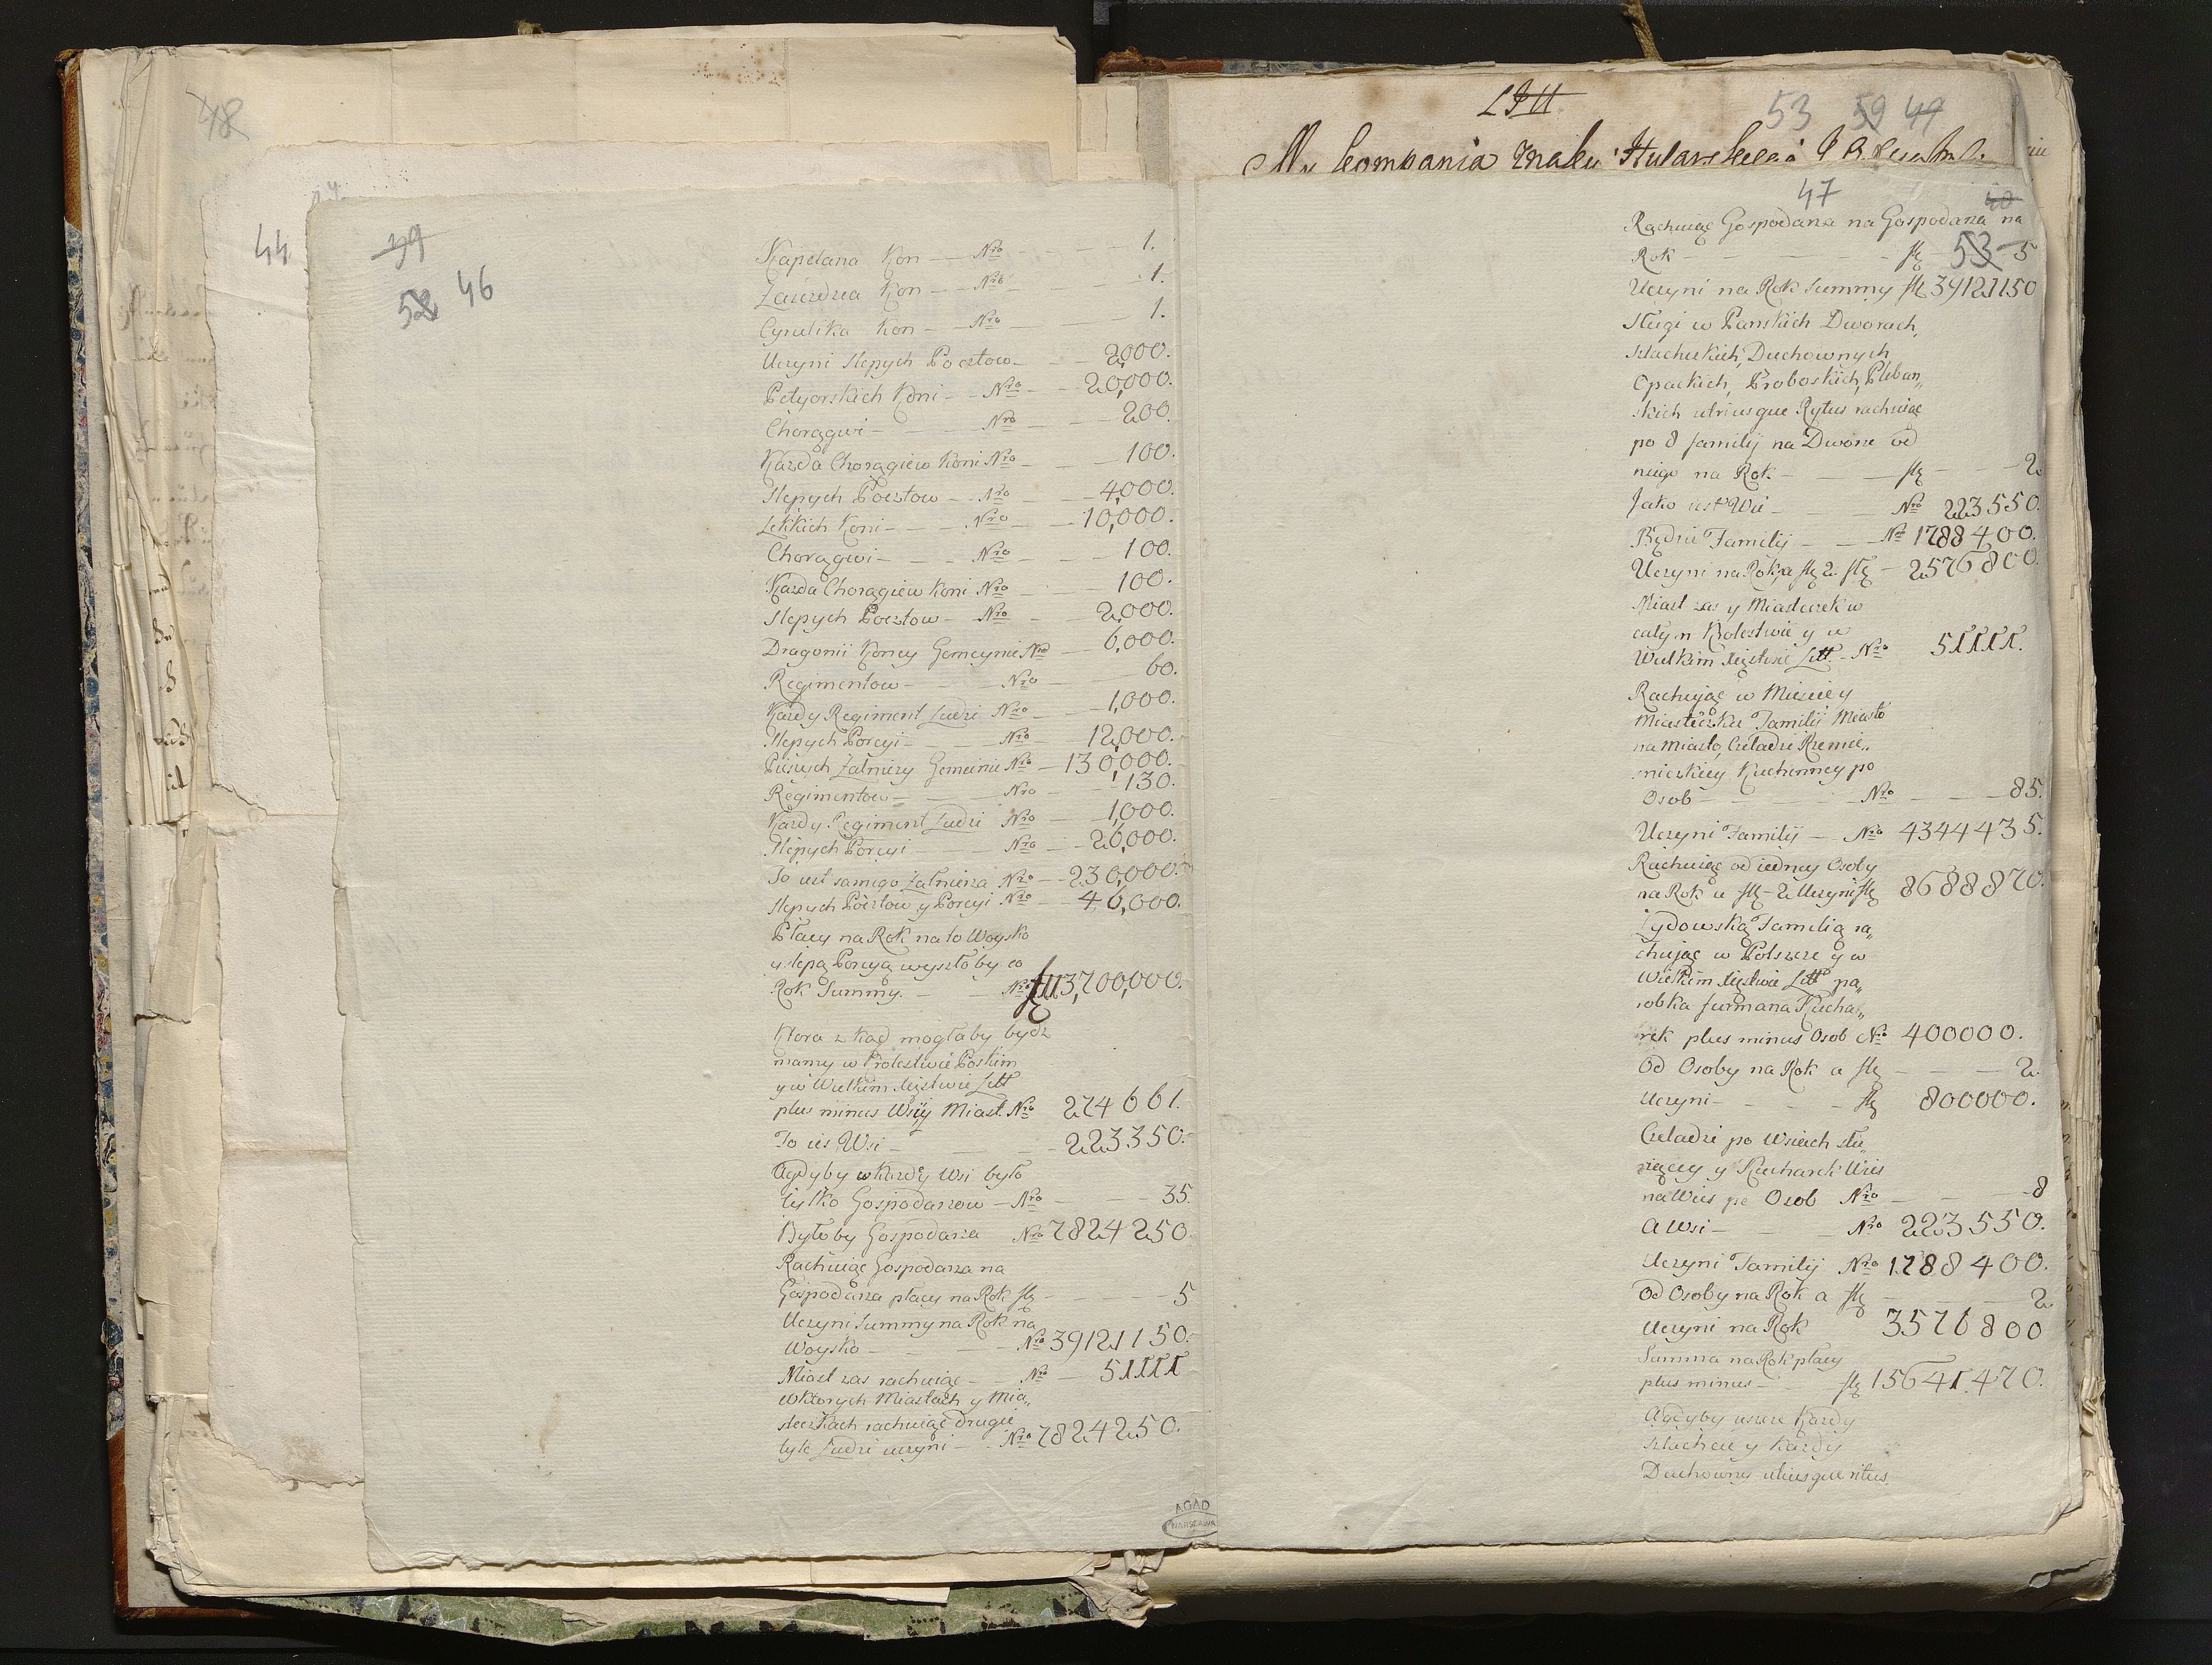 48
44
39
52 46
Kapelana Kon — Nro — 1.
Kon — Nro — 1.
Cyrulika Kon — Nro — 1.
Uczyni slepych Pocztow — 2,000.
Petyorskich Koni — Nro — 20,000.
Chorągwi — Nro — 200.
Kazda Chorągiew Koni Nro — 100.
Slepych Pocztow — Nro — 4,000.
Lekkich Koni — Nro — 10,000.
Chorągwi — Nro — 100.
Kazda Chorągiew Koni Nro — 100.
Slepych Pocztow — Nro — 2,000.
Dragonii Konney Gemeynie Nro — 6,000.
Regimentow — Nro — 60.
Kazdy Regiment Ludzi Nro — 1,000.
Slepych Porcyi — Nro — 12,000.
Pieszych Zalnierzy Gemeinie Nro — 130,000.
Regimentow — Nro — 130.
Kazdy Regiment Ludzi Nro — 1,000.
Slepych Porcyi — Nro — 26,000.
To iest samego Zalnierza Nro — 230,000.
Slepych Pocztow y Porcyi Nro — 46,000.
Płacy na Rok na to Woysko
y slepą Porcyą wyszłoby co
Rok Summy. — Nro 113,700,000.
Ktora z kąd mogłaby bydz
mamy w Krolestwie Polskim
y w Wielkim Xięstwie Litt
plus minus Wsiy Miast. Nro 274661.
To ies Wsi — 223350.
Agdyby w kazdy Wsi było
tylko Gospodarzow — Nro — 35.
Byłoby Gospodarza Nro 7824250.
Rachuiąc Gospodarza na
Gospodarza płacy na Rok fl — 5
Uczyni Summy na Rok na
Woysko — Nro 39121150.
Miast zas rachuiąc — Nro — 51111
w ktorych Miastach y Mia„
steczkach rachuiąc drugie
tyle Ludzi uczyni — Nro 7824250.
AGAD
WARSZAWA
53 59 49
Kompania znaku Husarskiego
47 40
Rachuiąc Gospodarza na Gospodarza na
Rok — fl — 5
53
Uczyni na Rok Summy fl 39121150
Sługi w Panskich Dworach,
szlacheckich, Duchownych
Opackich, Proboskich, Pleban„
skich utriusque Rytus rachuiąc
po 8 familij na Dworze od
niego na Rok — fl — 2
Jako iest Wsi — Nro 223550.
Będzie Familij — Nro 1788400.
Uczyni na Rok a fl 2. fl — 2576800.
Miast zas y Miasteczek w
całym Krolestwie y w
Wielkim Xięstwie Litt. — Nro 51111.
Rachuiąc w Miescie y
Miasteczku Familij Miasto
na Miasto, Czeladzi Rzemie„
snickiey Kuchenney po
Osob — Nro — 85.
Uczyni Familij — Nro 4344435.
Rachuiąc od iedney Osoby
na Rok a fl — 2 Uczyni fl 8688870.
Zydowską Familią ra„
chuiąc w Polszcze y w
Wielkim Xięstwie Litt pa„
robka furmana Kucha„
rek plus minus Osob Nro 400000.
Od Osoby na Rok a fl — 2.
Uczyni — fl 800000.
Czeladzi po Wsiach słu„
ząccy y Kucharek Wies
na Wies po Osob Nro — 8
A Wsi — Nro 223550.
Uczyni Familij Nro 1788400.
Od Osoby na Rok a fl — 2.
Uczyni na Rok 3576800
Summa na Rok płacy
plus minus — fl 15641470.
Agdyby ieszcze Kazdy
szlachcic y Kazdy
Duchowny utriusque ritus